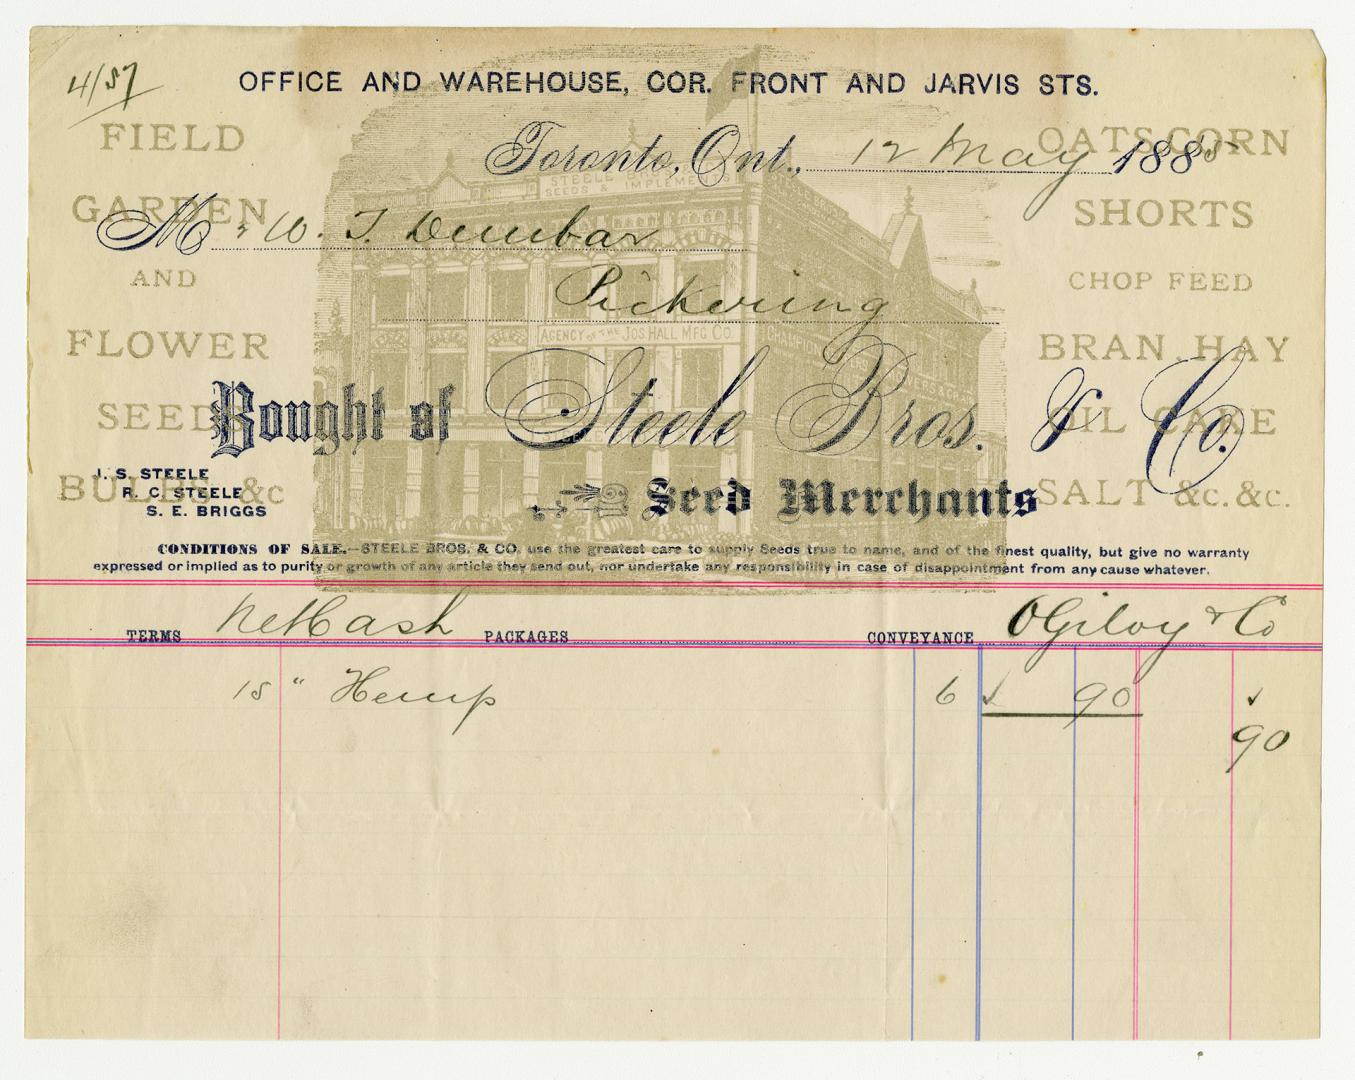 4/57
OFFICE AND WAREHOUSE, COR. FRONT AND JARVIS STS.
Toronto, Ont., 12 May 1885
Mr W. T. Dunbar
Pickering
FIELD
GARDEN
AND
FLOWER
SEEDS
BULBS &c
OATS CORN
SHORTS
CHOP FEED
BRAN HAY
OIL CAKE
SALT &c. &c.
STEELE BROS
SEEDS & IMPLEMENTS
AGENCY OF THE JOS HALL MFG CO
CHAMPION
Bought of Steele Bros. & Co.
Seed Merchants
J. S. STEELE
R. C. STEELE
S. E. BRIGGS
CONDITIONS OF SALE.—STEELE BROS. & CO. use the greatest care to supply Seeds true to name, and of the finest quality, but give no warranty
expressed or implied as to purity or growth of any article they send out, nor undertake any responsibility in case of disappointment from any cause whatever.
TERMS Net Cash PACKAGES CONVEYANCE Ogilvy & Co
15 " Hemp 6 90
90